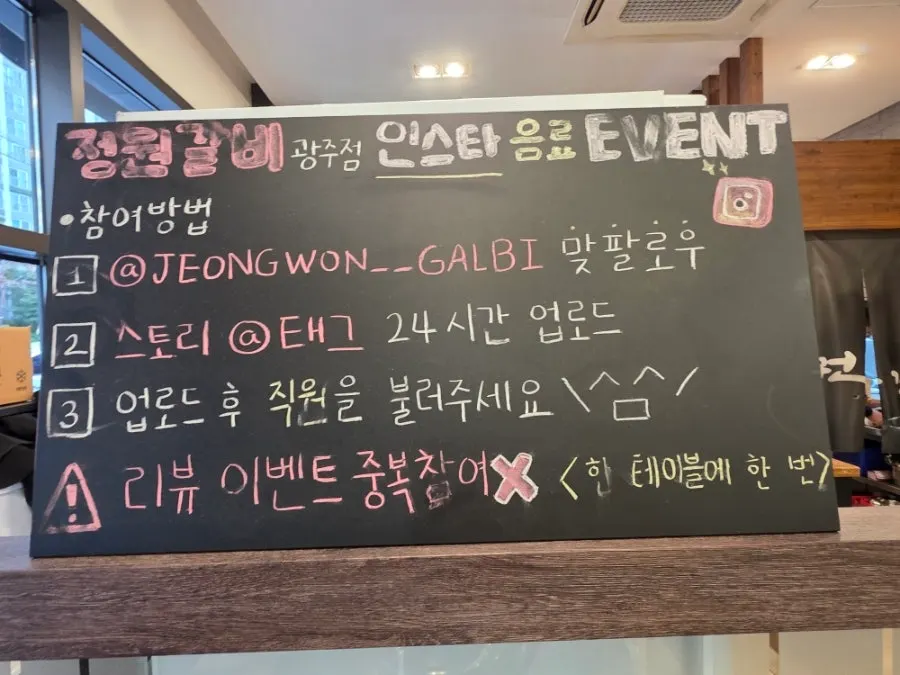 정원갈비 광주점 인스타 음료 EVENT
• 참여방법
1 @JEONGWON__GALBI 맞팔로우
2 스토리 @태그 24시간 업로드
3 업로드 후 직원을 불러주세요 \^ㅁ^/
! 리뷰 이벤트 중복참여 X <한 테이블에 한 번>